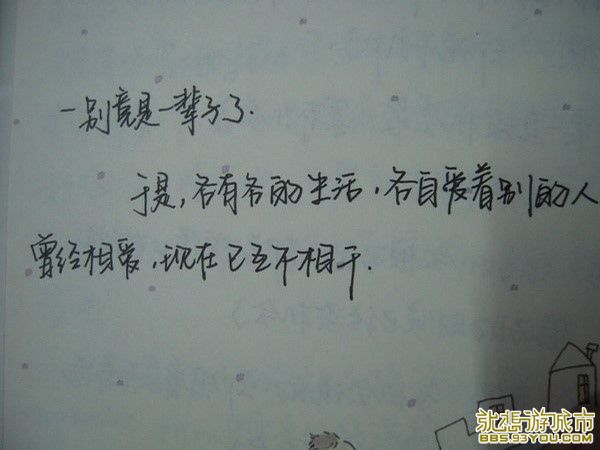 一别竟是一辈子了.
于是,各有各的生活,各自爱着别的人
曾经相爱,现在已互不相干.
885.93YOU.COM